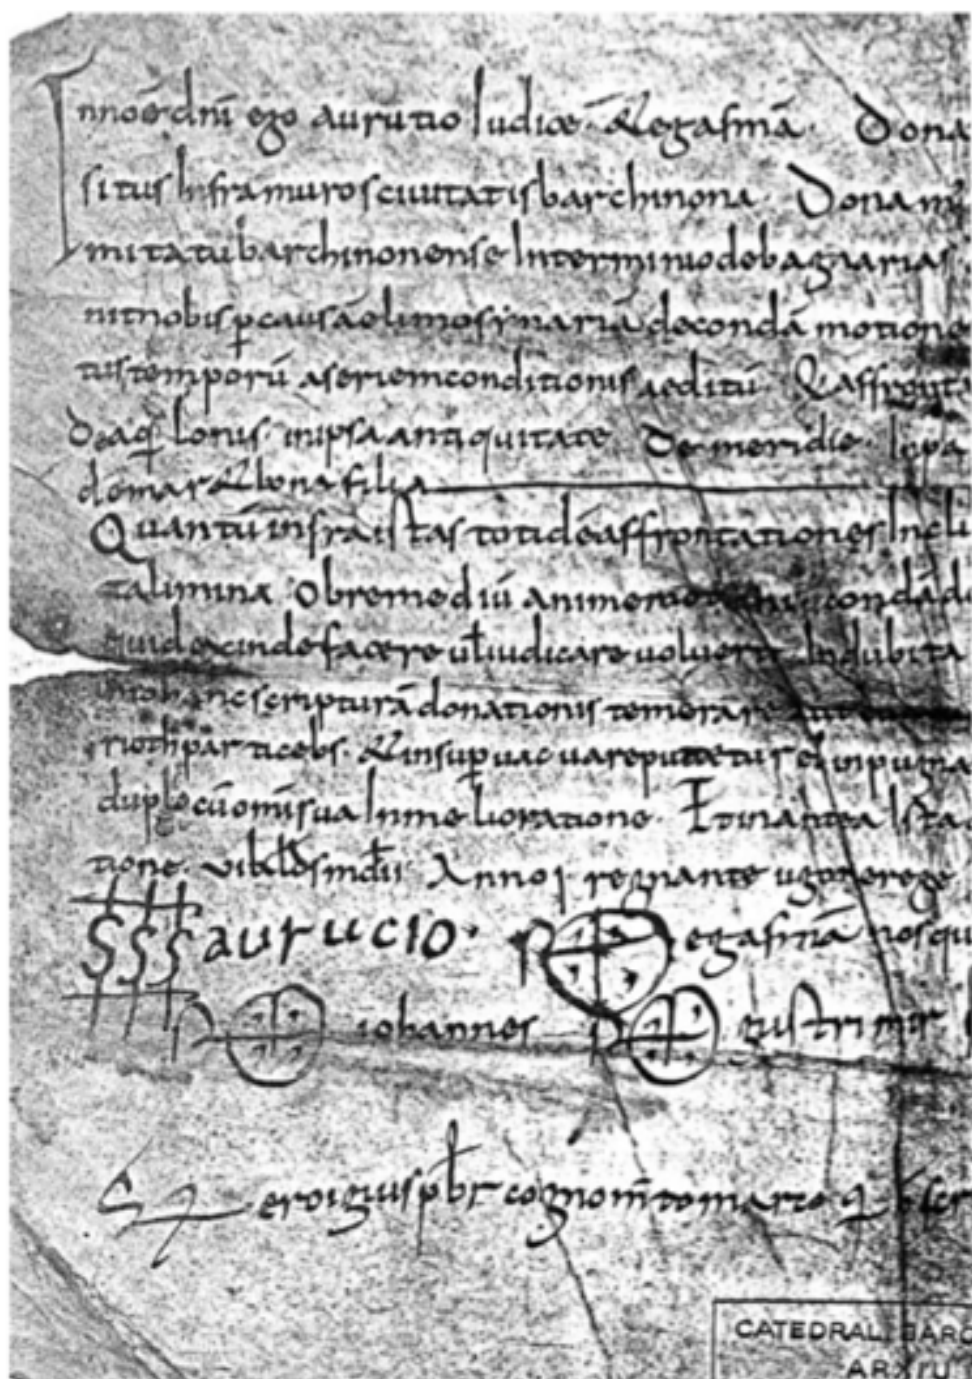 Innoē dnī ego aurutio Iudice · & egasmā · Dona
situs Infra muros civitatis barchinona · Dona m
mitatū barchinonense In terminio de bagnarias
nit nobis p causā elimosinariā de condā motione
tus temporū a seriem conditionis aeditū · & affronta
de aq̄lonis · in ipsa antiquitate De meridie · In pa
demar & bona filia
Quantū infra istas totidē affrontationes Inclu
za limina Ob remediū anime condā d
quid exinde facere vł iudicare voluerit In dubita
hanc scripturā donationis temerare
particebs · & insup vacua reputetur el inpugna
duplo cū omī sua Inmelioratione · & in antea Ista
tione · vi kłds madii Anno I regnante ugone rege
SSS aurucio · S egasmā nos qu
S iohannes S gustrimir
S eroigius pbr cognomto marco q
CATEDRAL BARC
ARXIU